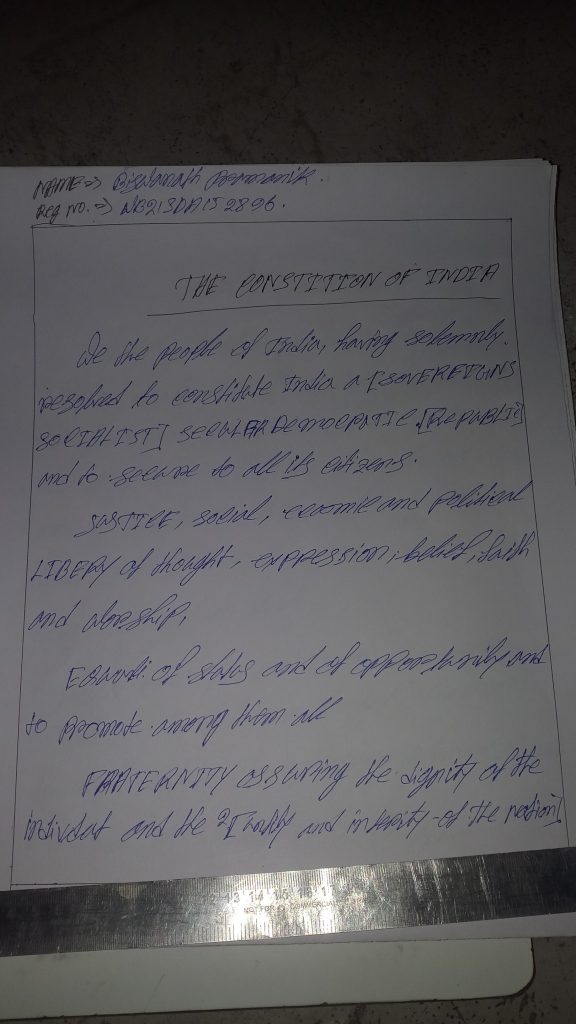 NAME => Biswanath Pormanik.
Reg No. => WB21SDA152896.
THE CONSTITION OF INDIA
We the people of India, having solemnly.
resolved to constitute India a [SOVEREIGNS
SOCIALIST] SECULAR DEMOCRATIC [REPUBLIC]
and to secure to all its citizens.
JUSTICE, social, ecomic and political
LIBERY of thought, expression, belief, faith
and worship,
of status and of opportunity and
to promote among them all
FRATERNITY assuring the dignity of the
and the and of the nation]
13 14 15 16 17
NOT FOR COMMERCIAL